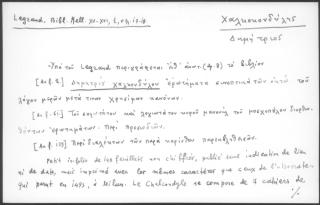 Legrand, Bibl. Hell. XV-XVI, I, σσ. 17-18
Χαλκοκονδύλης
Δημήτριος
Ὑπὸ τοῦ Legrand περιγράφεται τὸ βιβλίον
Δημητρίου χαλκονδύλου ἐρωτήματα συνοπτικὰ τῶν ὀκτὼ τοῦ
λόγου μερῶν μετά τινων χρησίμων κανόνων.
Τοῦ σοφωτάτου καὶ λογιωτάτου κυροῦ μανουὴλ τοῦ μοσχοπούλου διορθω
θέντων ἐρωτημάτων: Περὶ προσωδιῶν.
Περὶ διαλέκτων τῶν παρὰ κορίνθου παρεκβληθεισῶν.
Petit in-folio de feuillets non chiffrés, publié sans indication de lieu
ni de date, mais imprimé avec les mêmes caractères que ceux de l'Isocrates
qui parut en 1493, à Milan. Le Chalcondyle se compose de cahiers de